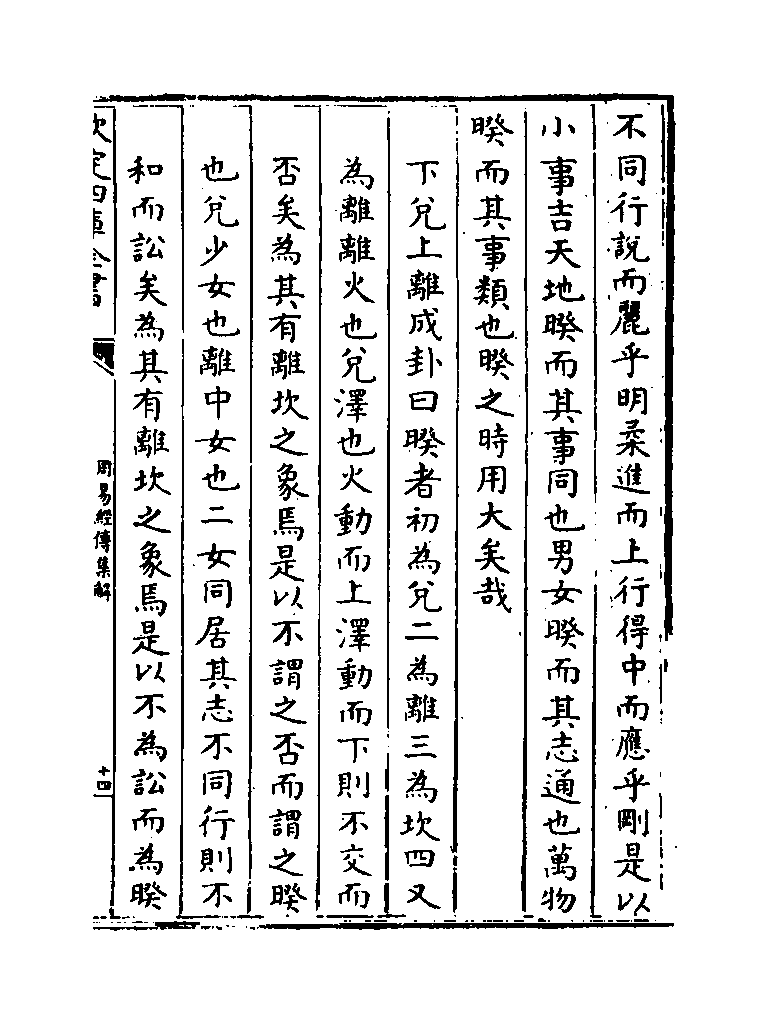 不同行說而麗乎明柔進而上行得中而應乎剛是以
小事吉天地睽而其事同也男女睽而其志通也萬物
睽而其事類也睽之時用大矣哉
下兌上離成卦曰睽者初為兌二為離三為坎四又
為離離火也兌澤也火動而上澤動而下則不交而
否矣為其有離坎之象焉是以不謂之否而謂之睽
也兌少女也離中女也二女同居其志不同行則不
和而訟矣為其有離坎之象焉是以不為訟而為睽
欽定四庫全書
周易經傳集解
十四